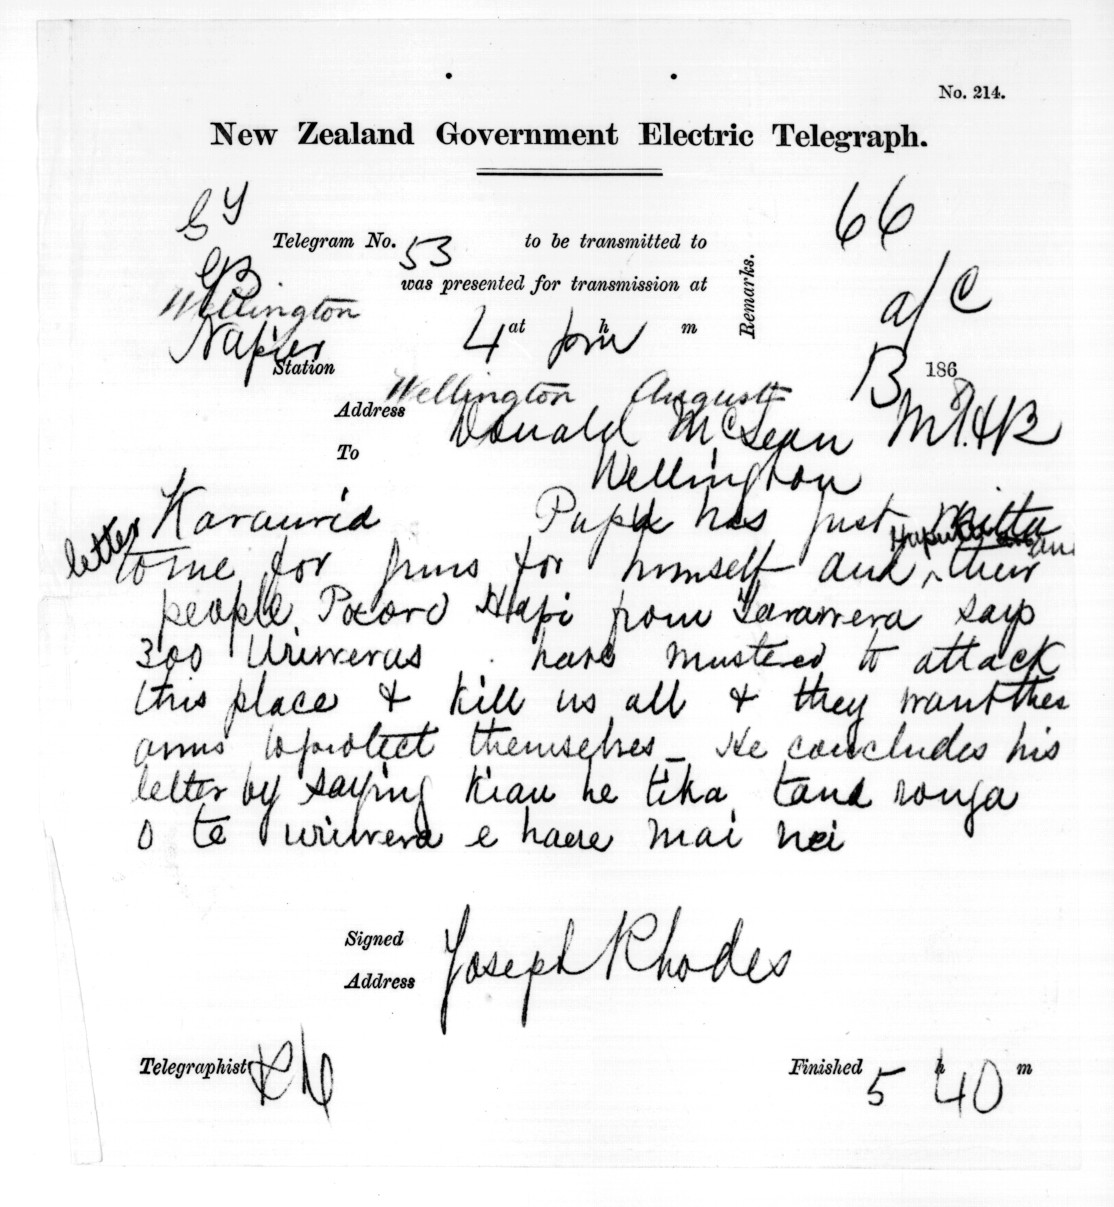 No. 214.
New Zealand Government Electric Telegraph.
66
Telegram No. 53 to be transmitted to
was presented for transmission at
Remarks.
Wellington
Napier
4 at pm h m
a/c
Station
B 186
Wellington August 8
Address
Donald McLean
To
Wellington
Karauria Pupu has just
letter to me for guns for himself and their
people Paora Hapi from Tarawera says
300 Uriweras have mustered to attack
this place & kill us all & they want the
arms to protect themselves _ He concludes his
letter by saying kiau he tika tana ronga
o te uriwera e haere mai nei
Signed
Joseph Rhodes
Address
Telegraphist
Finished 5 h 40 m